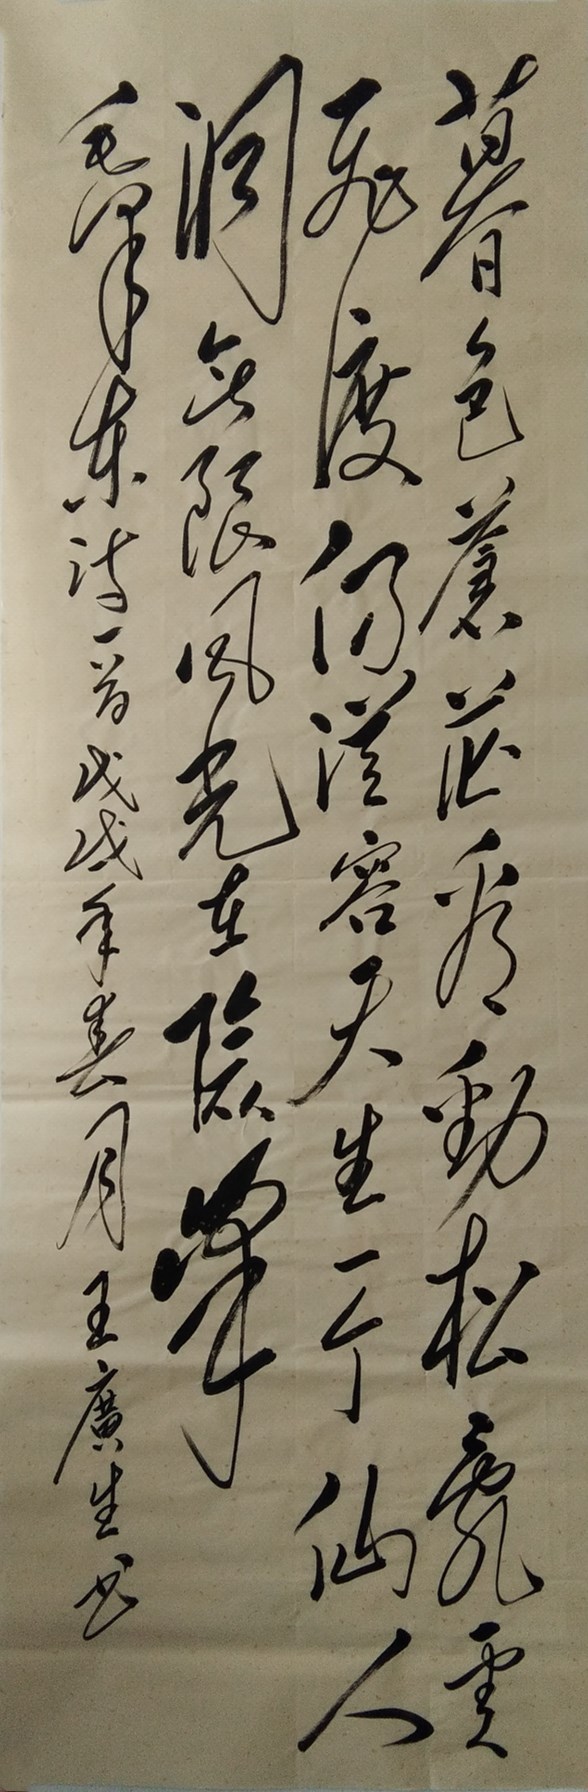 暮色蒼茫看勁松亂雲
飛渡仍從容天生一个仙人
洞無限風光在險峰
毛澤東詩一首戊戌年春月王廣生书